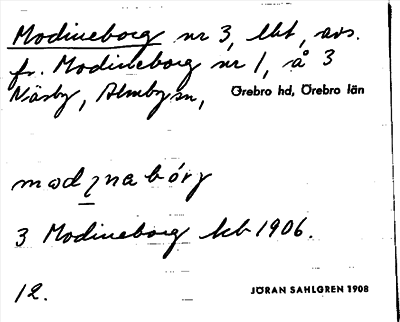 Modineborg nr 3, lht, avs.
fr. Modineborg nr 1, å 3
Näsby, Almby sn, Örebro hd, Örebro län
3 Modineborg kb 1906.
12. JÖRAN SAHLGREN 1908